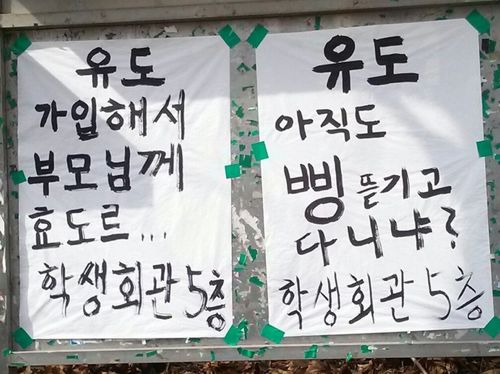 유도
가입해서
부모님께
효도르...
학생회관 5층
유도
아직도
삥 뜯기고
다니냐?
학생회관 5층